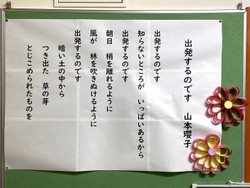 出発するのです　山本瓔子
出発するのです
知らないところが　いっぱいあるから
出発するのです
朝日　梢を離れるように
風が　林を吹きぬけるように
出発するのです
暗い土の中から
つき出た　草の芽
とじこめられたものを